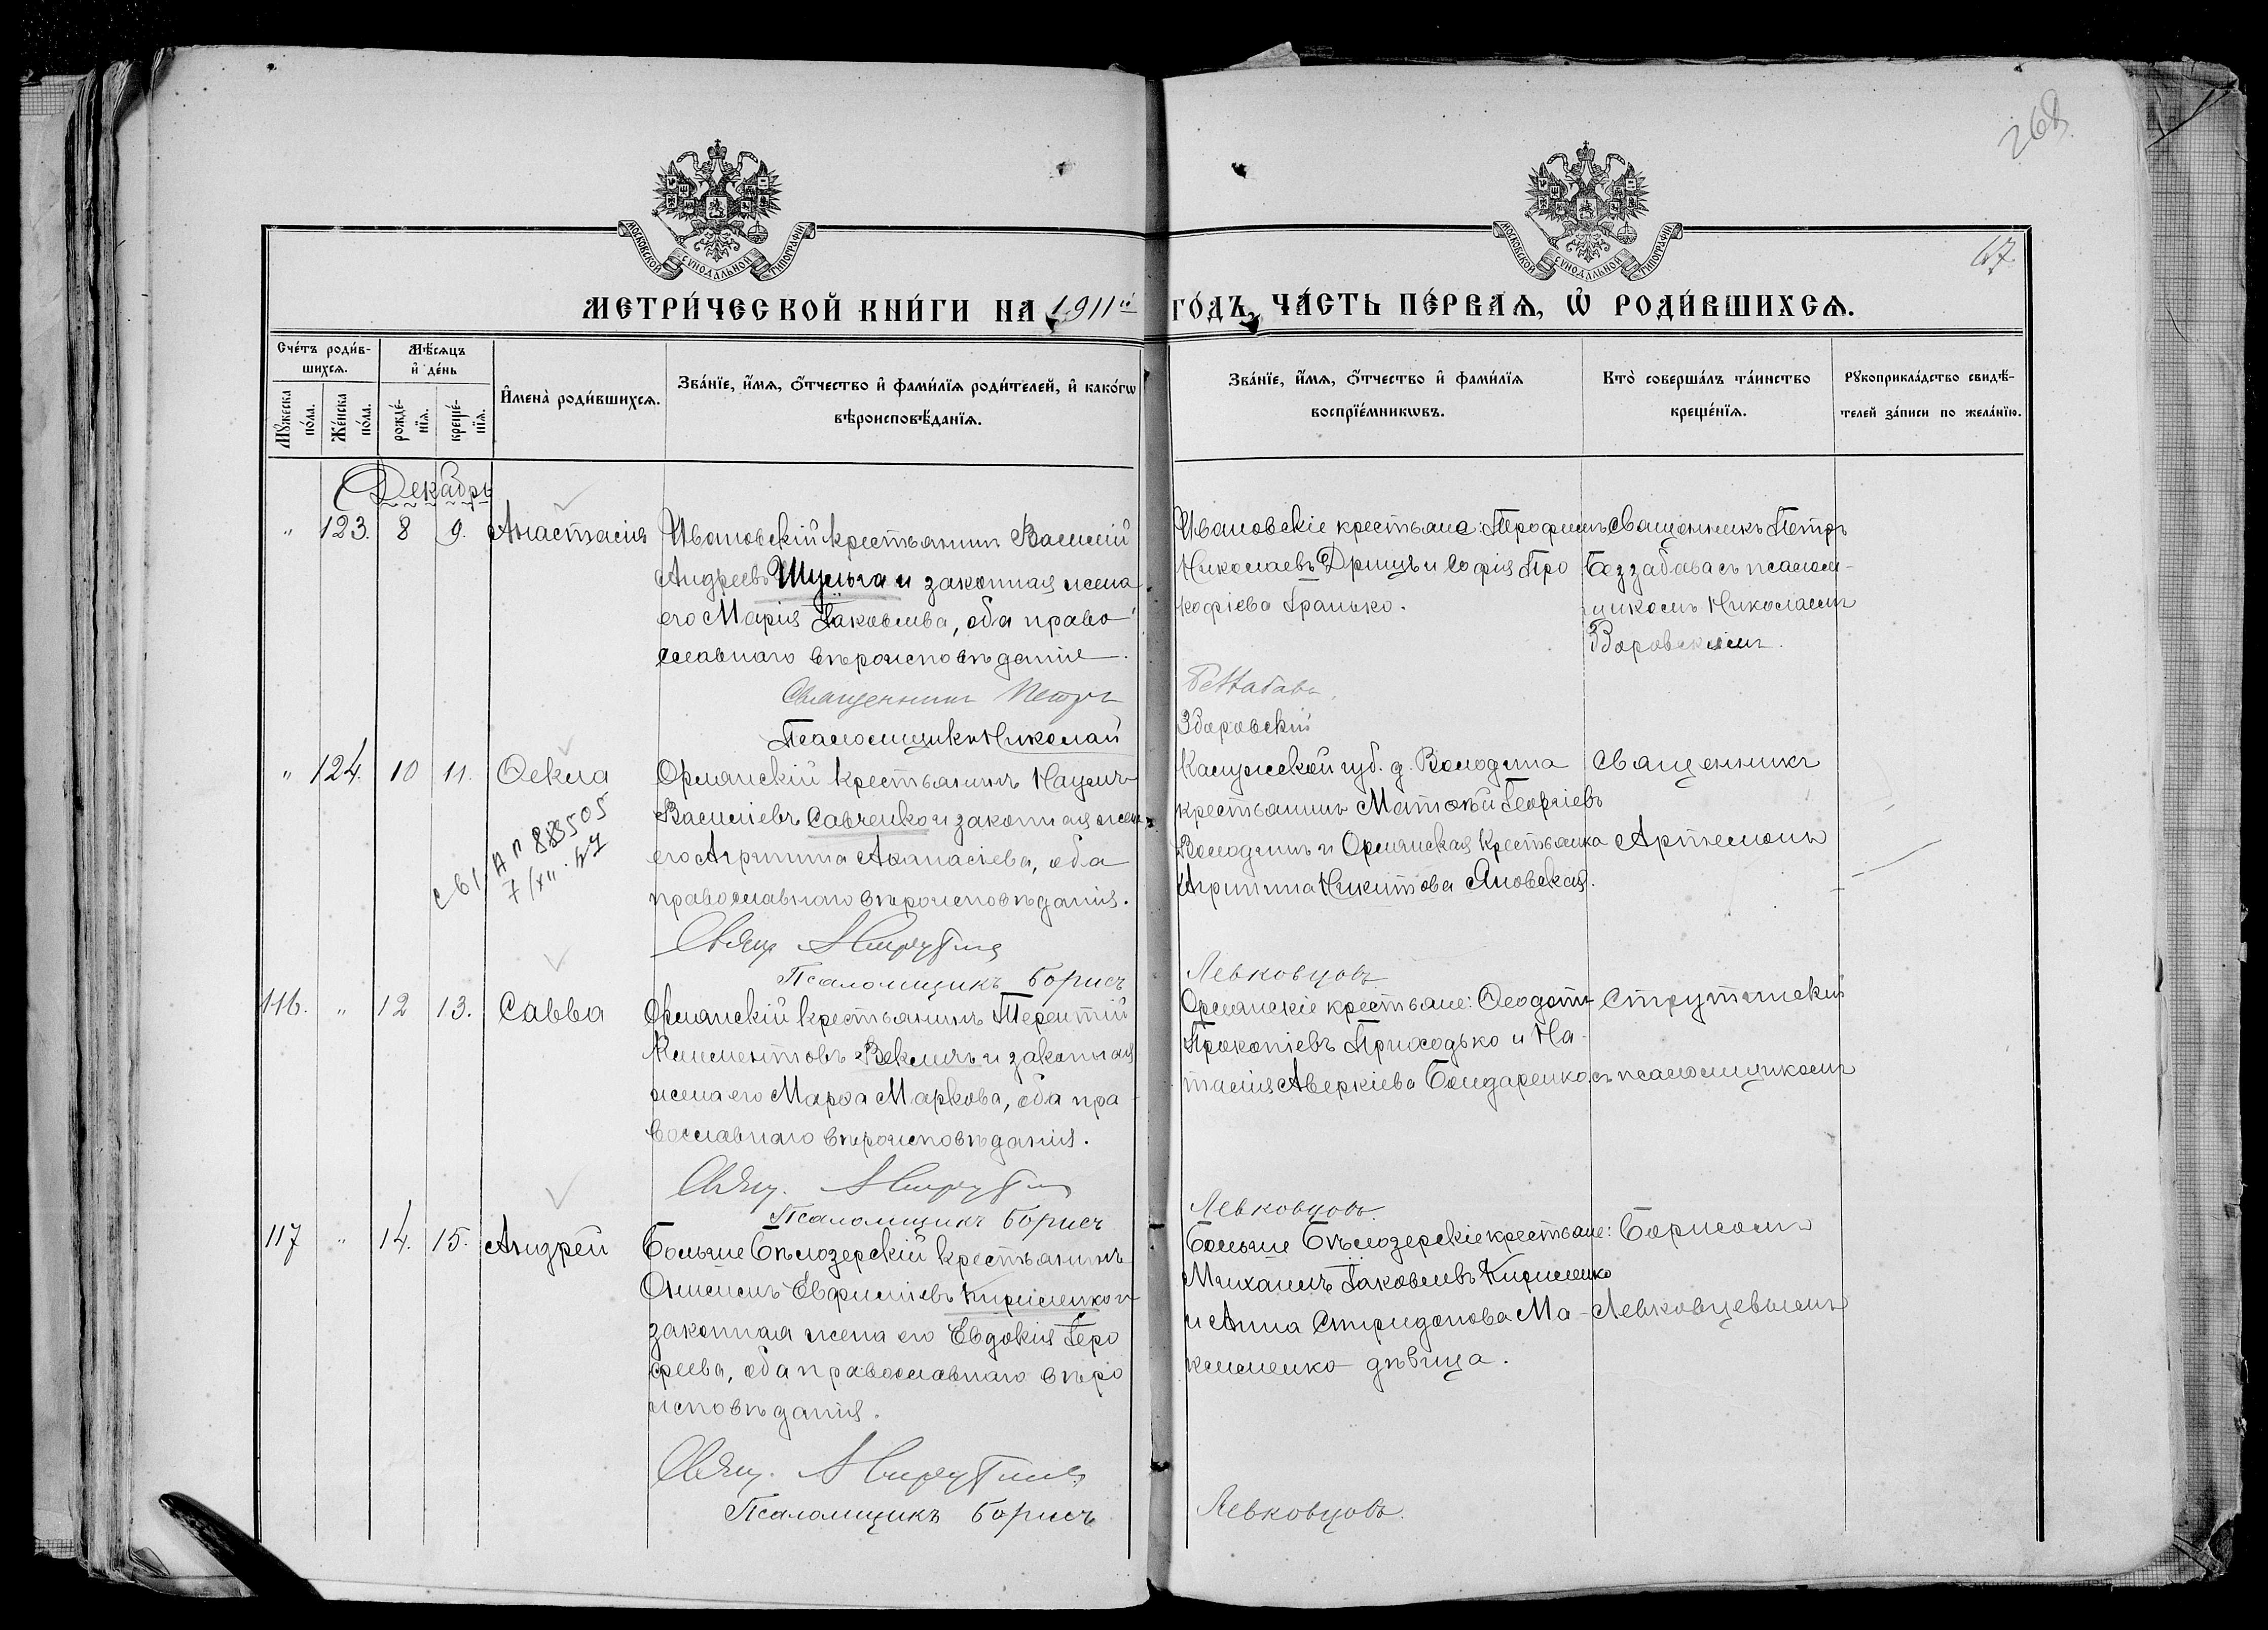 268
67.
МОСКОВСКОЙ СѴНОДАЛЬНОЙ ТИПОГРАФІИ
МОСКОВСКОЙ СѴНОДАЛЬНОЙ ТИПОГРАФІИ
МЕТРИ́ЧЕСКОЙ КНИ́ГИ НА 1911й ГО́ДЪ, ЧА́СТЬ ПЕ́РВАѦ, Ѡ҆ РОДИ́ВШИХСѦ.
Сче́тъ роди́в-
шихсѧ.
Мꙋ́жеска по́ла.
Же́нска по́ла.
Мѣ́сѧцъ
и҆ де́нь
рожде́-нїѧ.
креще́-нїѧ.
И҆мена̀ роди́вшихсѧ.
Зва́нїе, и҆́мѧ, ѻ҆́тчество и҆ фами́лїѧ роди́телей, и҆ како́гѡ
вѣроисповѣ́данїѧ.
Зва́нїе, и҆́мѧ, ѻ҆́тчество и҆ фами́лїѧ
воспрїе́мникѡвъ.
Кто̀ соверша́лъ та́инство
креще́нїѧ.
Рꙋкоприкла́дство свидѣ́-
телей за́писи по жела́нїю.
Декабрь
" 123. 8 9. Анастасія
Ивановскій крестьянинъ Василій
Андреевъ Шульга и законная жена
его Марія Іаковлева, оба право
славнаго вѣроисповѣданія.
Священникъ Петръ
Псаломщикъ Николай
Ивановскіе крестьяне: Трофимъ
Николаевъ Дрицъ и Софія Про
кофіева Гранько.
Здоровскій
Священникъ Петръ
Беззабава съ псалом-
щикомъ Николаемъ
" 124. 10 11. Ѳекла
Орлянскій крестьянинъ Наумъ
Василіевъ Савченко и законная жена
его Агрипина Аѳанасіева, оба
православнаго вѣроисповѣданія.
7/XII. 47
Свящ.
Псаломщикъ Борисъ
Калужской губ. д. Володина
крестьянинъ Матѳѣй Георгіевъ
Володинъ и Орлянская крестьянка
Агрипина Никитова Яновская.
Левковцовъ.
Священникъ
Артемонъ
116. " 12 13. Савва
Орлянскій крестьянинъ Терентій
Климентовъ Векличъ и законная
жена его Марѳа Маркова, оба пра
вославнаго вѣроисповѣданія.
Свящ.
Псаломщикъ Борисъ
Орлянскіе крестьяне: Ѳеодотъ
Прокопіевъ Приходько и На-
талія Аверкіева Бондаренко.
Левковцовъ.
Струтинскій
съ псаломщикомъ
117 " 14. 15. Андрей
Больше Бѣлозерскій крестьянинъ
Евфиміевъ Кириленко и
законная жена его Евдокія Іеро
феева, оба православнаго вѣро
исповѣданія.
Свящ.
Псаломщикъ Борисъ
Больше Бѣлозерскіе крестьяне:
Михаилъ Іаковлевъ Кириленко
и Анна Спиридонова Ма-
клименко дѣвица.
Левковцовъ.
Борисомъ
Левковцевымъ